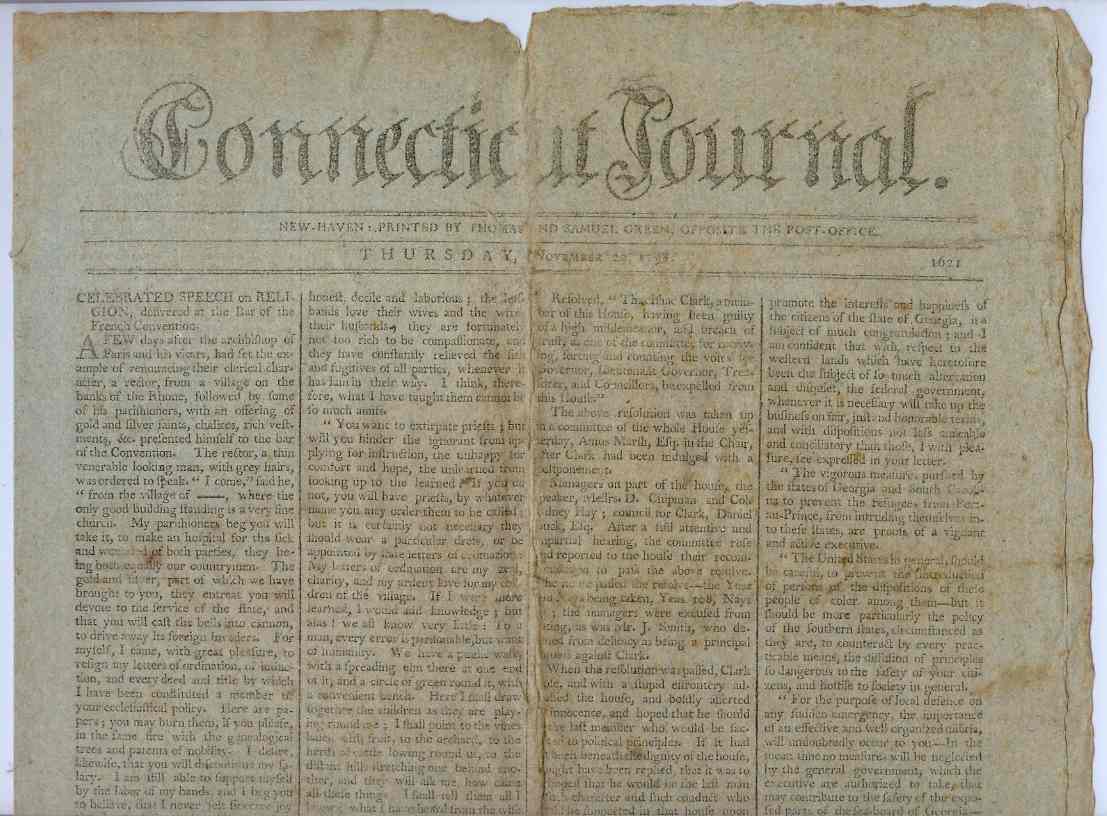 Connecticut Journal.
NEW-HAVEN: PRINTED BY THOMAS AND SAMUEL GREEN, OPPOSITE THE POST-OFFICE.
THURSDAY, NOVEMBER 1798.
1621
CELEBRATED SPEECH on RELI-
GION, delivered at the Bar of the
French Convention.
A FEW days after the archbishop of
Paris and his vicars, had set the ex-
ample of renouncing their clerical char-
acter, a rector, from a village on the
banks of the Rhone, followed by some
of his parishioners, with an offering of
gold and silver saints, chalices, rich vest-
ments, &c. presented himself to the bar
of the Convention. The rector, a thin
venerable looking man, with grey hairs,
was ordered to speak. " I come," said he,
" from the village of ——, where the
only good building standing is a very fine
church. My parishioners beg you will
take it, to make an hospital for the sick
and wounded of both parties, they be-
ing both equally our countrymen. The
gold and silver, part of which we have
brought to you, they entreat you will
devote to the service of the state, and
that you will cast the bells into cannon,
to drive away its foreign invaders. For
myself, I come, with great pleasure, to
resign my letters of ordination, of induc-
tion, and every deed and title by which
I have been constituted a member of
your ecclesiastical policy. Here are pa-
pers; you may burn them, if you please,
in the same fire with the genealogical
trees and patents of nobility. I desire,
likewise, that you will discontinue my sa-
lary. I am still able to support myself
by the labor of my hands, and I beg you
to believe, that I never felt sincerer joy
honest, docile and laborious; the hus-
bands love their wives and the wives
their husbands, they are fortunately
not too rich to be compassionate, and
they have constantly relieved the sick
and fugitives of all parties, whenever it
has lain in their way. I think, there-
fore, what I have taught them cannot be
so much amiss.
" You want to extirpate priests; but
will you hinder the ignorant from ap-
plying for instruction, the unhappy for
comfort and hope, the unlearned from
looking up to the learned? If you do
not, you will have priests, by whatever
name you may order them to be called;
but it is certainly not necessary they
should wear a particular dress, or be
appointed by state letters of ordination.
My letters of ordination are my zeal,
charity, and my ardent love for my chil-
dren of the village. If I were more
learned, I would add knowledge; but
alas! we all know very little: To a
man, every error is pardonable, but want
of humanity. We have a public walk,
with a spreading elm there at one end
of it, and a circle of green round it, with
a convenient bench. Here I shall draw
together the children as they are play-
ing round me; I shall point to the vines
laden with fruit, to the orchard, to the
herds of cattle lowing round us, to the
distant hills stretching one behind ano-
ther, and they will ask me, how came
all these things. I shall tell them all I
know; what I have heard from the wise
Resolved, " That Isaac Clark, a mem-
ber of this House, having been guilty
of a high misdemeanor, and breach of
trust, as one of the committee for receiv-
ing, sorting and counting the votes for
Governor, Lieutenant Governor, Trea-
surer, and Councillors, be expelled from
this House."
The above resolution was taken up
in a committee of the whole House yes-
terday, Amos Marsh, Esq. in the Chair,
after Clark had been indulged with a
postponement.
Managers on part of the house, the
speaker, Messrs. D. Chipman and
council for Clark, Daniel
Buck, Esq. After a full attentive and
impartial hearing, the committee rose
and reported to the house their recom-
mendation to pass the above resolve.
being taken, Yeas 108, Nays
; the managers were excused from
voting, as was Mr. J. Smith, who de-
against Clark.
When the resolution was passed, Clark
rose, and with a stupid effrontery ad-
dressed the house, and boldly asserted
innocence, and hoped that he should
be the last member who would be sac-
rificed to political principles. If it had
been beneath the dignity of the house,
might have been replied, that it was to
be hoped that he would be the last man
character and such conduct who
be supported in that house upon
promote the interests and happiness of
the citizens of the state of Georgia, is a
subject of much congratulation; and I
am confident that with respect to the
western lands which have heretofore
been the subject of so much altercation
and disgust, the federal government,
whenever it is necessary will take up the
business on fair, just and honorable terms,
and with dispositions not less amicable
and conciliatory than those, I with plea-
sure, see expressed in your letter.
" The vigorous measures pursued by
the states of Georgia and South Caroli-
na to prevent the refugees from Port-
au-Prince, from intruding themselves in-
to these states, are proofs of a vigilant
and active executive.
" The United States in general, should
be careful, to prevent the introduction
of persons of the dispositions of these
people of color among them—but it
should be more particularly the policy
of the southern states, circumstanced as
they are, to counteract by every prac-
ticable means, the diffusion of principles
so dangerous to the safety of your citi-
zens, and hostile to society in general.
" For the purpose of local defence on
any sudden emergency, the importance
of an effective and well organized militia,
will undoubtedly occur to you—In the
mean time no measures will be neglected
by the general government, which the
executive are authorized to take, that
may contribute to the safety of the expo-
sed parts of the sea-board of Georgia—